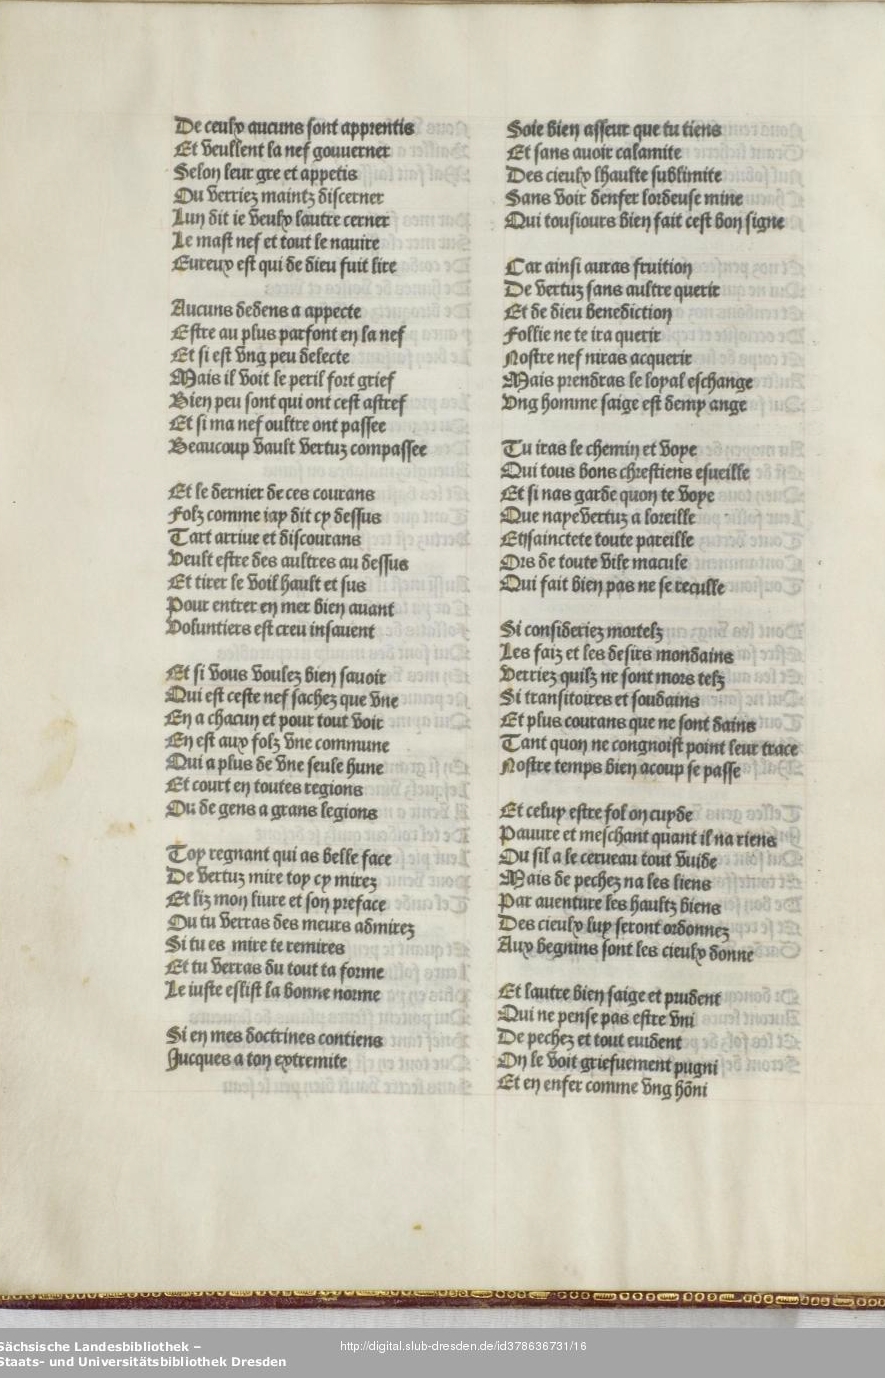 De ceulx aucuns sont apprentis
Et veullent la nef gouuerner
Selon leur gre et appetis
Ou verriez maintz discerner
Lun dit ie veulx lautre cerner
Le mast nef et tout le nauire
Eureux est qui de dieu fuit lire

Aucuns dedens a appecte
Estre au plus parfont en la nef
Et si est vng peu delecte
Mais il voit le peril fort grief
Bien peu sont qui ont cest astref
Et si ma nef oultre ont passee
Beaucoup vault vertuz compassee

Et le dernier de ces courans
Folz comme iay dit cy dessus
Tart arriue et discourans
Veult estre des aultres au dessus
Et tirer le voil hault et sus
Pour entrer en mer bien auant
Voluntiers est creu insauent

Et si vous voulez bien sauoir
Qui est ceste nef sachez que vne
En a chacun et pour tout voir
En est aux folz vne commune
Qui a plus de vne seule hune
Et court en toutes regions
Ou de gens a grans legions

Toy regnant qui as belle face
De vertuz mire toy cy mirez
Et liz mon liure et son preface
Ou tu verras des meurs admirez
Si tu es mire te remires
Et tu verras du tout ta forme
Le iuste eslist la bonne norme

Si en mes doctrines contiens
Jucques a ton extremite
Soie bien asseur que tu tiens
Et sans auoir calamite
Des cieulx lhaulte sublimite
Sans voir denfer lordeuse mine
Qui tousiours bien fait cest bon signe

Car ainsi auras fruition
De vertuz sans aultre querir
Et de dieu benediction
Follie ne te ira querir
Nostre nef niras acquerir
Mais prendras le loyal eschange
Vng homme saige est demy ange

Tu iras le chemin et voye
Qui tous bons chrestiens esueille
Et si nas garde quon te voye
Que naye vertuz a loreille
En sainctete toute pareille
Ors de toute vile macule
Qui fait bien pas ne se reculle

Si consideriez mortelz
Les faiz et les desirs mondains
Verriez quilz ne sont mors telz
Si transitoires et soudains
Et plus courans que ne sont dains
Tant quon ne congnoist point leur trace
Nostre temps bien acoup se passe

Et celuy estre fol on cuyde
Pauure et meschant quant il na riens
Ou sil a le cerueau tout vuide
Mais de pechez na les liens
Par auenture les haultz biens
Des cieulx luy seront ordonnez
Aux begnins sont les cieulx donne

Et lautre bien saige et prudent
Qui ne pense pas estre vni
De pechez et tout euident
On le voit griefuement pugni
Et en enfer comme vng hōni
Sächsische Landesbibliothek –
Staats- und Universitätsbibliothek Dresden
http://digital.slub-dresden.de/id378636731/16